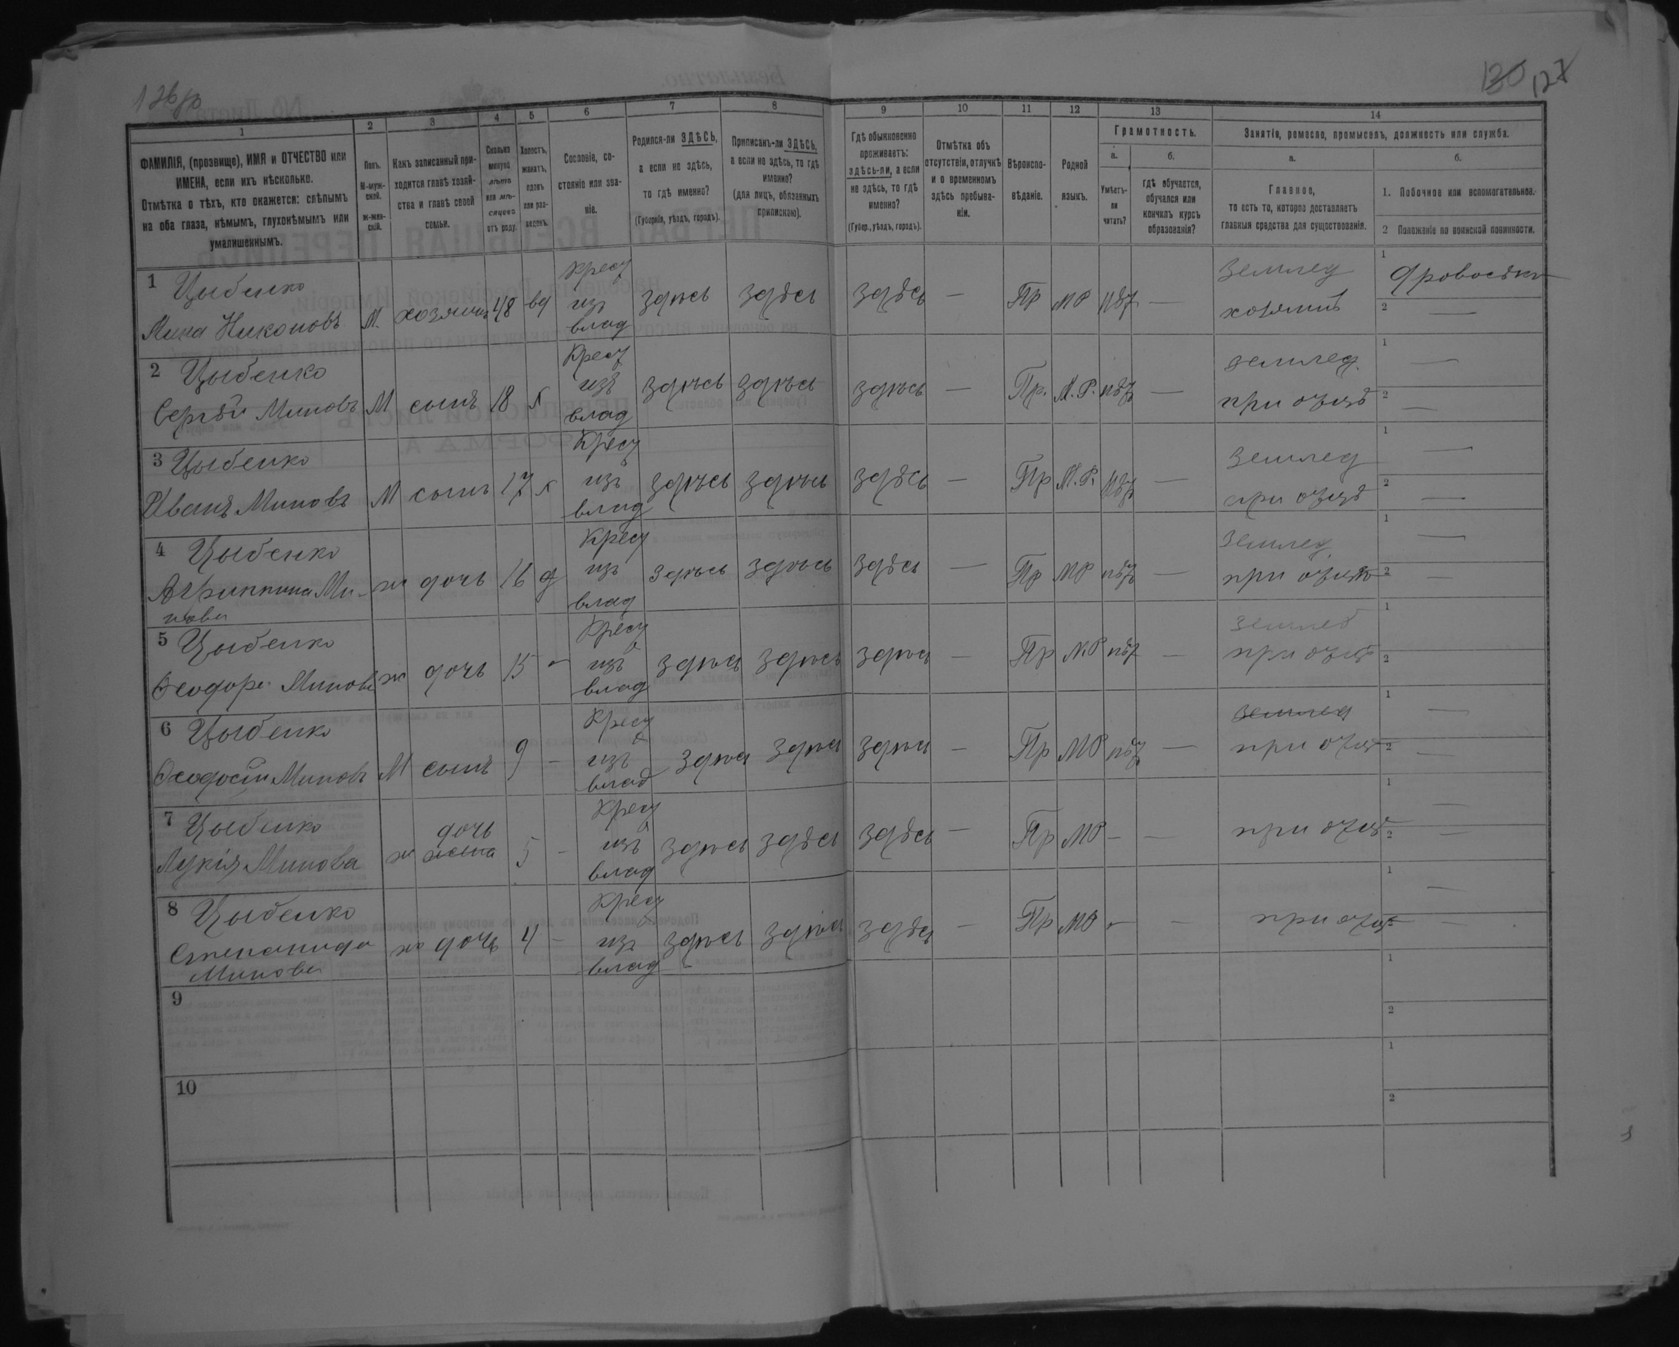 126об
130 127
1 2 3 4 5 6 7 8 9 10 11 12 13 14
ФАМИЛІЯ, (прозвище), ИМЯ и ОТЧЕСТВО или
ИМЕНА, если ихъ нѣсколько.
Отмѣтка о тѣхъ, кто окажется: слѣпымъ
на оба глаза, нѣмымъ, глухонѣмымъ или
умалишеннымъ.
Полъ.
М-муж-
ской.
ж-жен-
скій.
Какъ записанный при-
ходится главѣ хозяй-
ства и главѣ своей
семьи.
Сколько
минуло
лѣтъ
или мѣ-
сяцевъ
отъ роду.
Холостъ,
женатъ,
вдовъ
или раз-
веденъ.
Сословіе, со-
стояніе или зва-
ніе.
Родился-ли ЗДѢСЬ,
а если не здѣсь,
то гдѣ именно?
(Губернія, уѣздъ, городъ).
Приписанъ-ли ЗДѢСЬ,
а если не здѣсь, то гдѣ
именно?
(для лицъ, обязанныхъ
припискою).
Гдѣ обыкновенно
проживаетъ:
здѣсь-ли, а если
не здѣсь, то гдѣ
именно?
(Губер., уѣздъ, городъ).
Отмѣтка объ
отсутствіи, отлучкѣ
и о временномъ
здѣсь пребыва-
ніи.
Вѣроиспо-
вѣданіе.
Родной
языкъ.
Грамотность.
а. б.
Умѣетъ-
ли
читать?
гдѣ обучается,
обучался или
кончилъ курсъ
образованія?
Занятіе, ремесло, промыселъ, должность или служба.
а. б.
Главное,
то есть то, которое доставляетъ
главныя средства для существованія.
1. Побочное или вспомогательное.
2 Положеніе по воинской повинности.
1 Цыбенко
Мина Никоновъ М. хозяинъ 48 вд
крест
изъ
влад
здѣсь здѣсь здѣсь — Пр МР нѣт —
землед
хозяинъ
1
2 —
2 Цыбенко
Сергѣй Миновъ М сынъ 18 х
Крест
изъ
влад
здѣсь здѣсь здѣсь — Пр. М.Р. нѣт —
землед.
при отцѣ
1 —
2 —
3 Цыбенко
Иванъ Миновъ М сынъ 17 х
Крест
изъ
влад
здѣсь здѣсь здѣсь — Пр М.Р. нѣт —
землед
при отцѣ
1 —
2 —
4 Цыбенко
Агриппина Ми-
нова
ж дочь 16 д
Крест
изъ
влад
здѣсь здѣсь здѣсь — Пр МР нѣт —
землед.
при отцѣ
1 —
2 —
5 Цыбенко
Ѳеодора Минова ж дочь 15 —
Крест
изъ
влад
здѣсь здѣсь здѣсь — Пр МР нѣт —
землед
при отцѣ
1
2
6 Цыбенко
Ѳеодосій Миновъ М сынъ 9 —
Крест
изъ
влад
здѣсь здѣсь здѣсь — Пр МР нѣт —
землед
при отцѣ
1 —
2 —
7 Цыбенко
Лукія Минова ж дочь 5 —
Крест
изъ
влад
здѣсь здѣсь здѣсь — Пр МР — —
при отцѣ
1 —
2 —
8 Цыбенко
Степанида
Минова
ж дочь 4 —
Крест
изъ
влад
здѣсь здѣсь здѣсь — Пр МР — —
при отцѣ
1 —
2 —
9
1
2
10
1
2